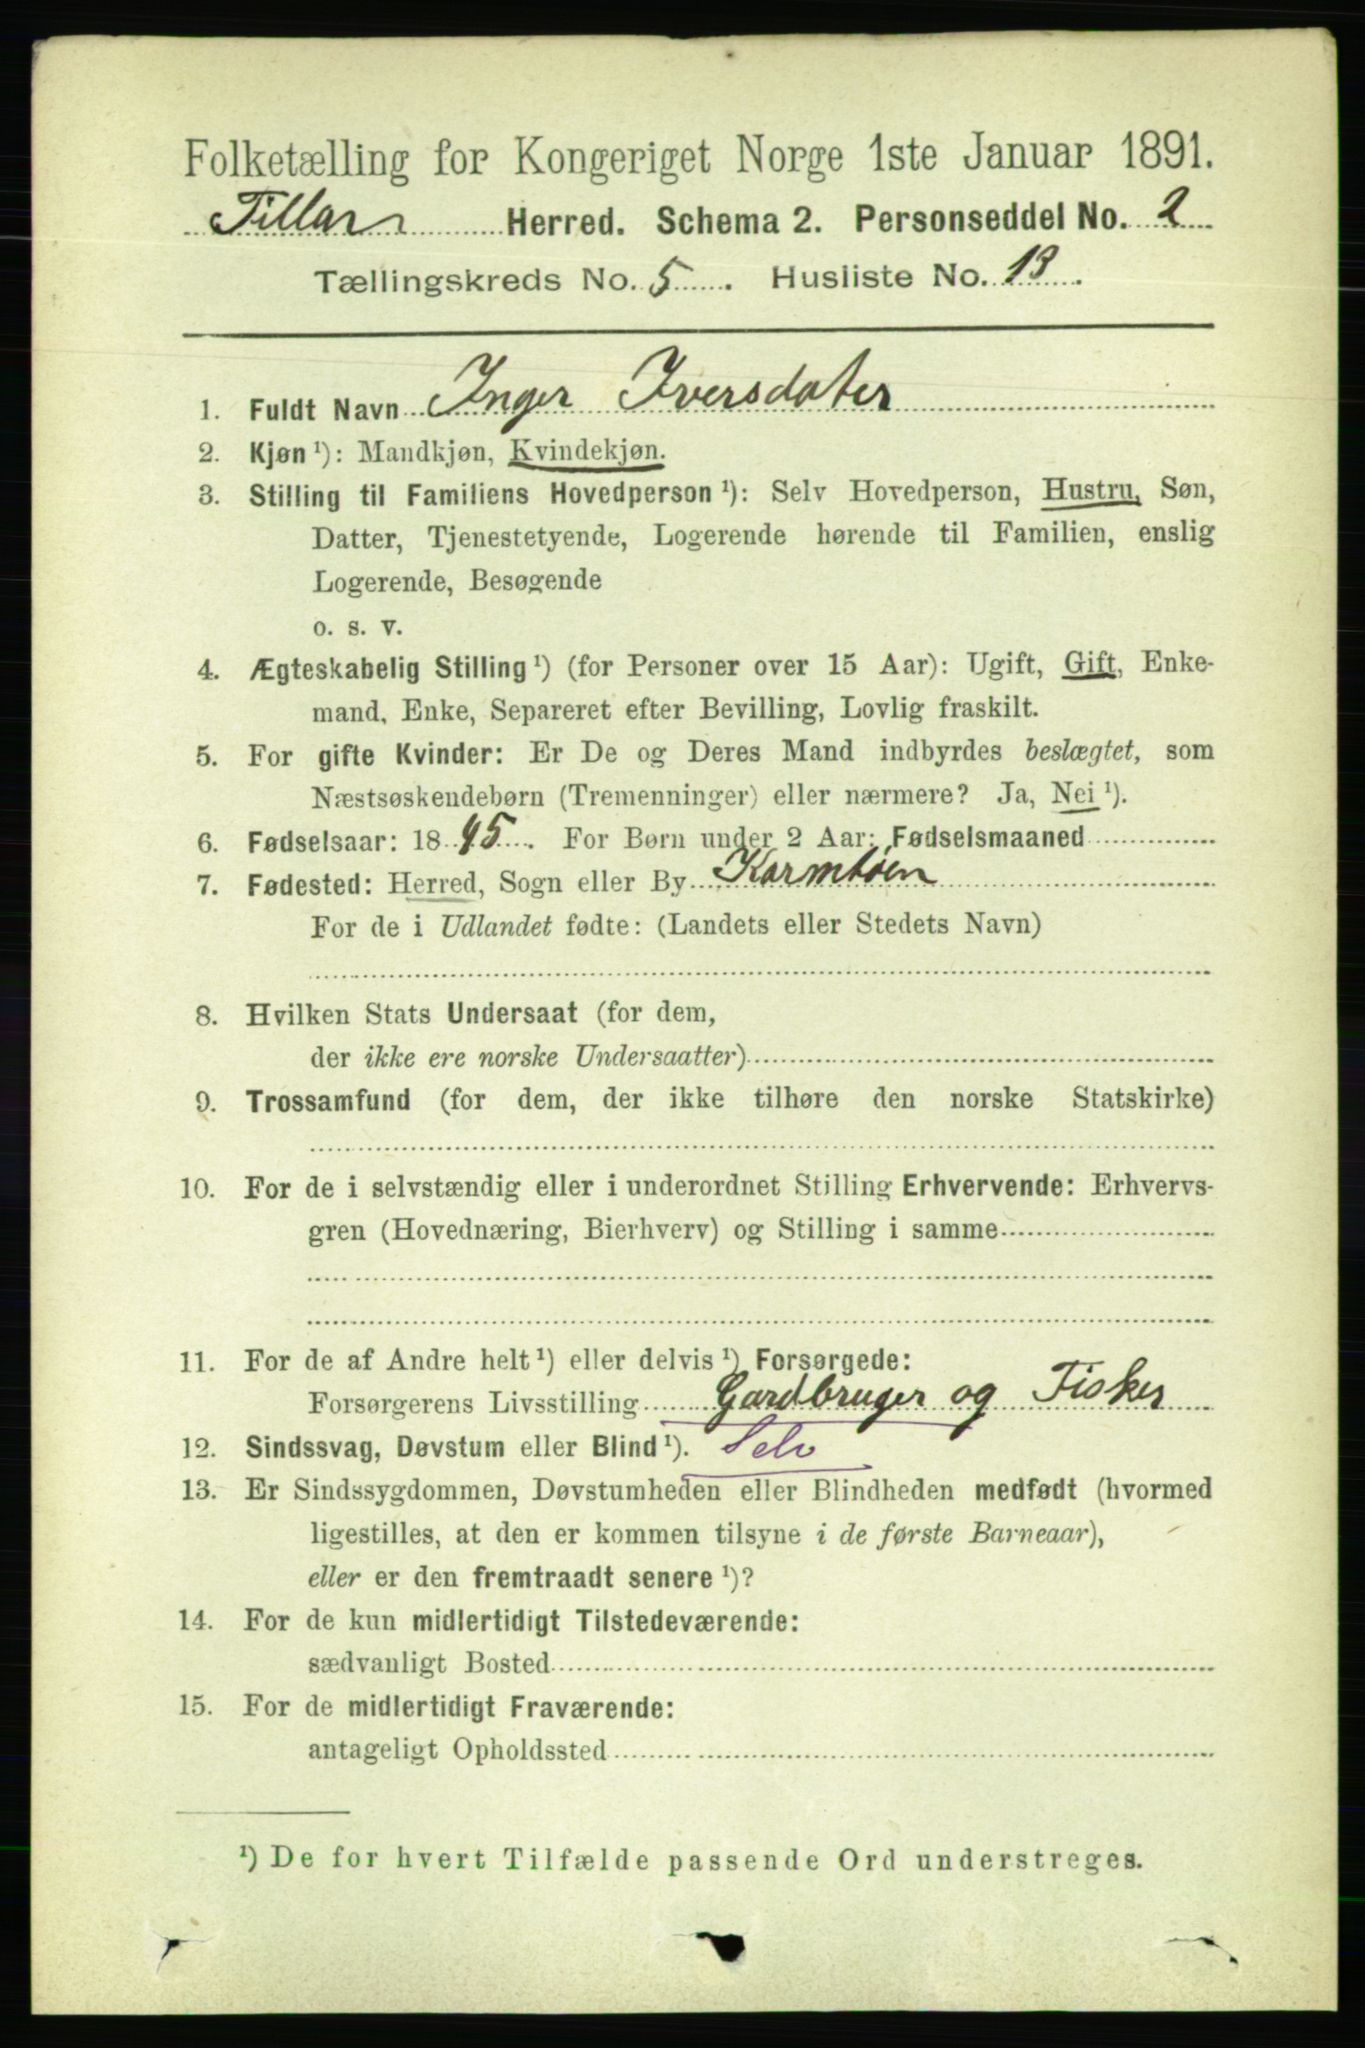 Folketælling for Kongeriget Norge 1ste Januar 1891.
Tillar Herred. Schema 2. Personseddel No. 2
Tællingskreds No. 5. Husliste No. 13.
1. Fuldt Navn Inger Iversdater
2. Kjøn ¹): Mandkjøn, Kvindekjøn.
3. Stilling til Familiens Hovedperson ¹): Selv Hovedperson, Hustru, Søn,
Datter, Tjenestetyende, Logerende hørende til Familien, enslig
Logerende, Besøgende
o. s. v.
4. Ægteskabelig Stilling ¹) (for Personer over 15 Aar): Ugift, Gift, Enke-
mand, Enke, Separeret efter Bevilling, Lovlig fraskilt.
5. For gifte Kvinder: Er De og Deres Mand indbyrdes beslægtet, som
Næstsøskendebørn (Tremenninger) eller nærmere? Ja, Nei ¹).
6. Fødselsaar: 1845. For Børn under 2 Aar: Fødselsmaaned
7. Fødested: Herred, Sogn eller By
For de i Udlandet fødte: (Landets eller Stedets Navn)
8. Hvilken Stats Undersaat (for dem,
der ikke ere norske Undersaatter)
9. Trossamfund (for dem, der ikke tilhøre den norske Statskirke)
10. For de i selvstændig eller i underordnet Stilling Erhvervende: Erhvervs-
gren (Hovednæring, Bierhverv) og Stilling i samme
11. For de af Andre helt ¹) eller delvis ¹) Forsørgede:
Forsørgerens Livsstilling Gardbruger og Fisker
12. Sindssvag, Døvstum eller Blind ¹). Selv
13. Er Sindssygdommen, Døvstumheden eller Blindheden medfødt (hvormed
ligestilles, at den er kommen tilsyne i de første Barneaar),
eller er den fremtraadt senere ¹)?
14. For de kun midlertidigt Tilstedeværende:
sædvanligt Bosted
15. For de midlertidigt Fraværende:
antageligt Opholdssted
¹) De for hvert Tilfælde passende Ord understreges.